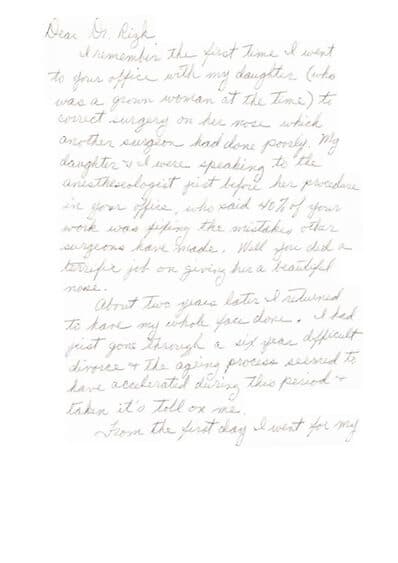 Dear Dr. Rizk
I remember the first time I went
to your office with my daughter (who
was a grown woman at the time) to
correct surgery on her nose which
another surgeon had done poorly. My
daughter & I were speaking to the
anesthesiologist just before her procedure
in your office, who said 40% of your
work was fixing the mistakes other
surgeons have made. Well you did a
terrific job on giving her a beautiful
nose.
About two years later I returned
to have my whole face done. I had
just gone through a six year difficult
divorce & the ageing process seemed to
have accelerated during this period &
taken it's toll on me.
From the first day I went for my